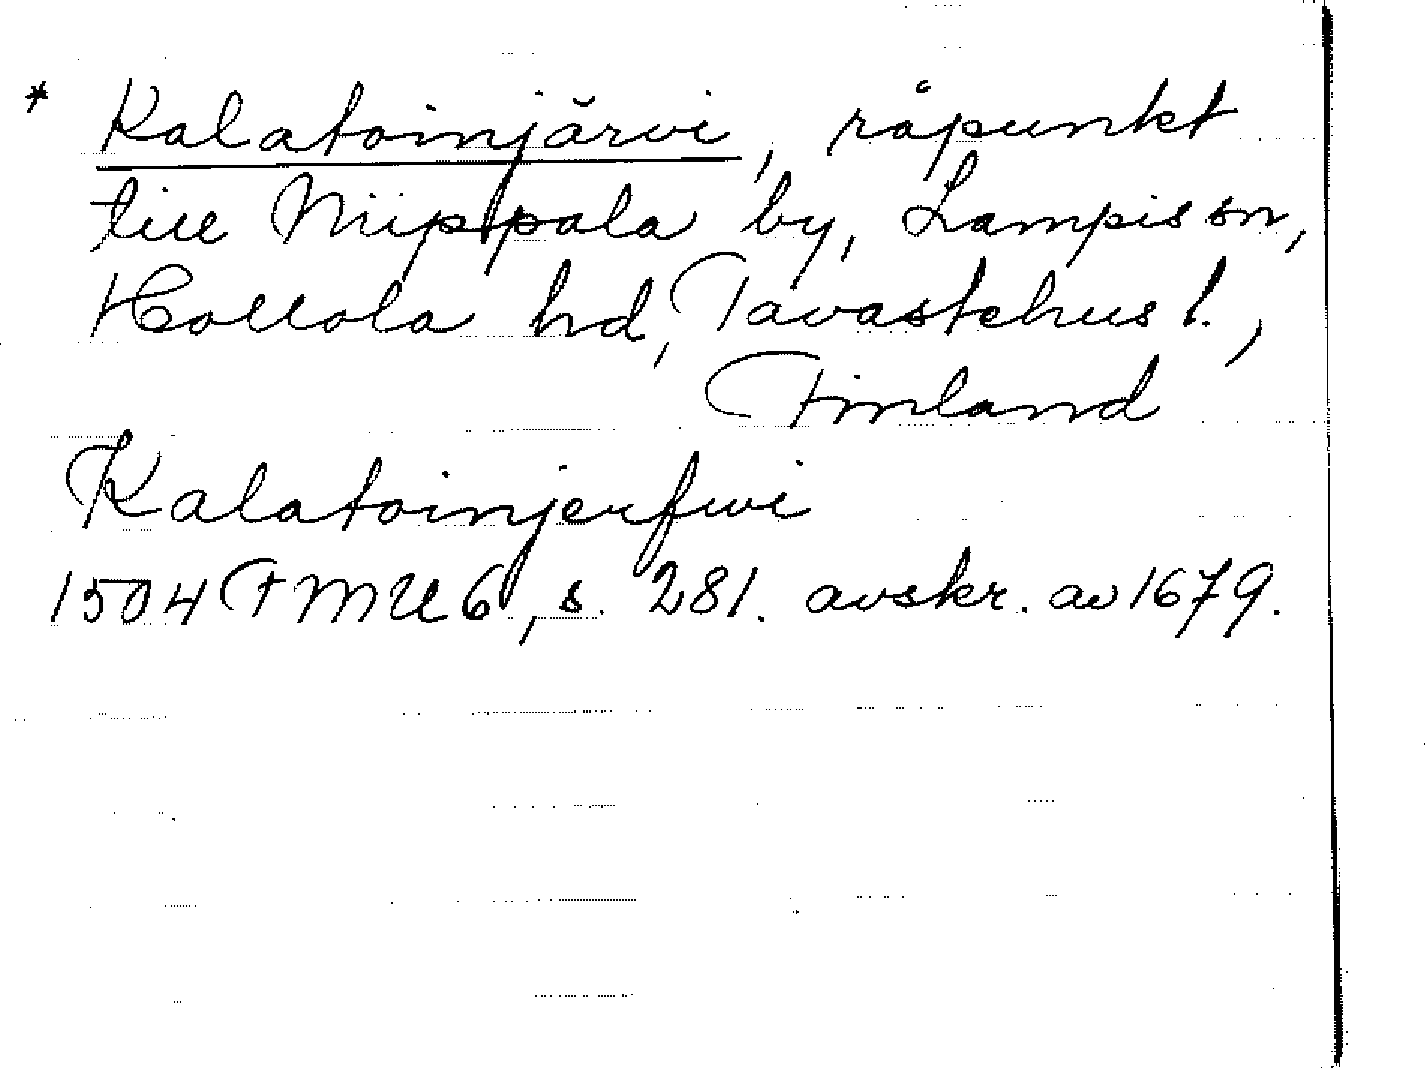 * Kalatoinjärvi, råpunkt
till Niippala by, Lampis sn,
Hollola hd, Tavastehus l.,
Finland
Kalatoinjerfwi
1504 FMU 6, s. 281. avskr. av 1679.